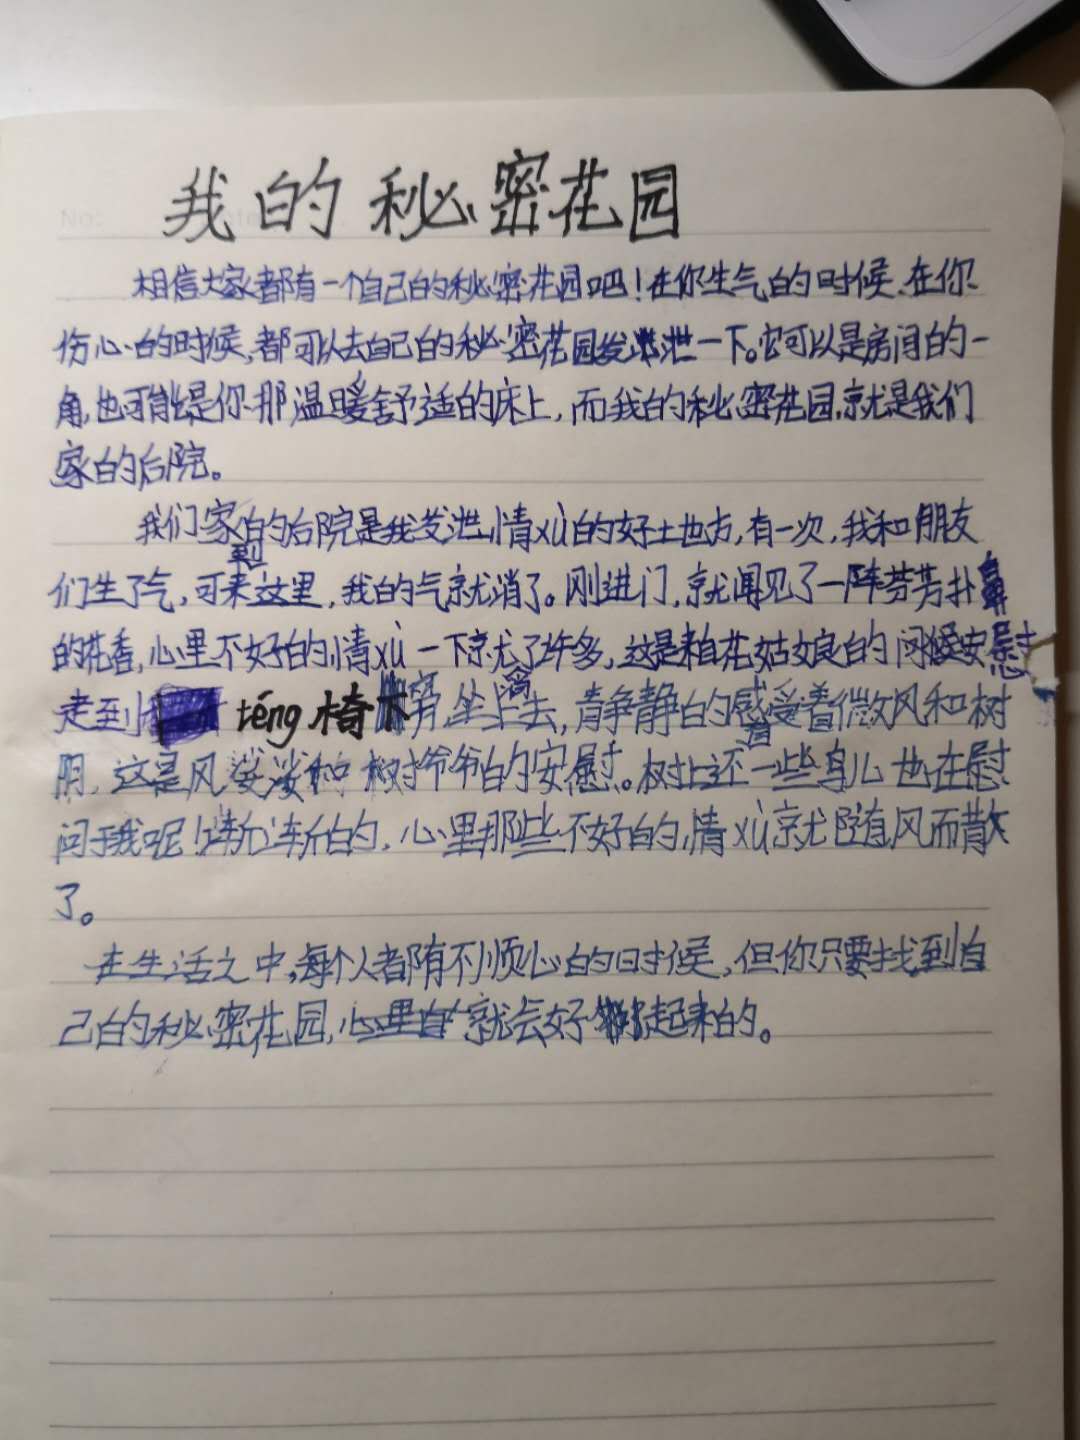 我的秘密花园
相信大家都有一个自己的秘密花园吧！在你生气的时候、在你
伤心的时候，都可以去自己的秘密花园发泄一下。它可以是房间的一
角，也可能是你那温暖舒适的床上，而我的秘密花园，就是我们
家的后院。
我们家的后院是我发泄情xù的好土地方，有一次，我和朋友
们生了气，可来到这里，我的气就消了。刚进门，就闻见了一阵芬芳扑鼻
的花香，心里不好的情xù一下就少了许多，这是来自花姑娘的问候安慰
走到 téng椅 旁，坐上去，静静的感受着微风和树
阴，这是风婆婆和树爷爷的安慰。树上还一些鸟儿也在慰
问于我呢！渐渐的，心里那些不好的情xù就随风而散
了。
在生活之中，每个人都有不顺心的时候，但你只要找到自
己的秘密花园，心里自就会好起来的。